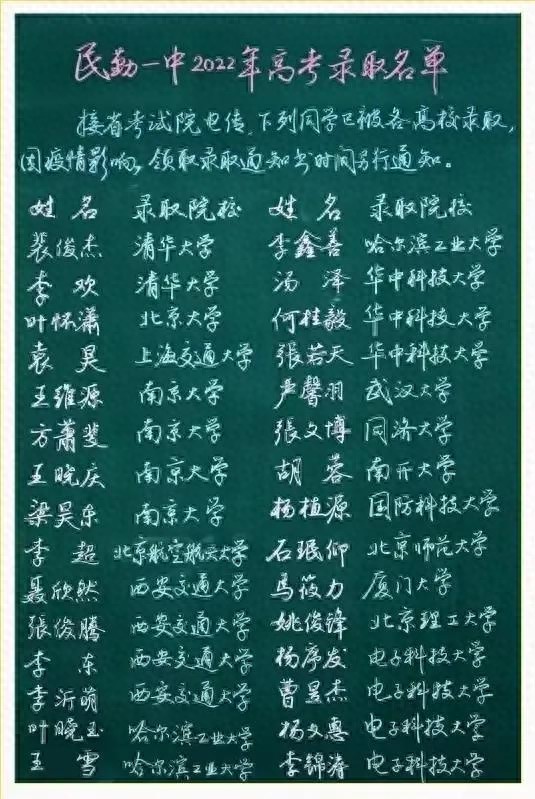 民勤一中2022年高考录取名单
接省考试院电传,下列同学已被各高校录取,
因疫情影响,领取录取通知书时间另行通知。
姓名 录取院校 姓名 录取院校
裴俊杰 清华大学 李鑫善 哈尔滨工业大学
李欢 清华大学 汤泽 华中科技大学
叶怀潇 北京大学 何桂毅 华中科技大学
袁昊 上海交通大学 張若天 华中科技大学
王維源 南京大学 严馨羽 武汉大学
方蕭斐 南京大学 張文博 同济大学
王晓庆 南京大学 胡蓉 南开大学
梁昊东 南京大学 杨植源 国防科技大学
李超 北京航空航天大学 石珉仰 北京师范大学
聂欣然 西安交通大学 馬筱力 厦门大学
張俊腾 西安交通大学 姚俊锋 北京理工大学
李东 西安交通大学 杨序发 电子科技大学
李沂萌 西安交通大学 曹昱杰 电子科技大学
叶晓玉 哈尔滨工业大学 杨文惠 电子科技大学
王雪 哈尔滨工业大学 李錦涛 电子科技大学